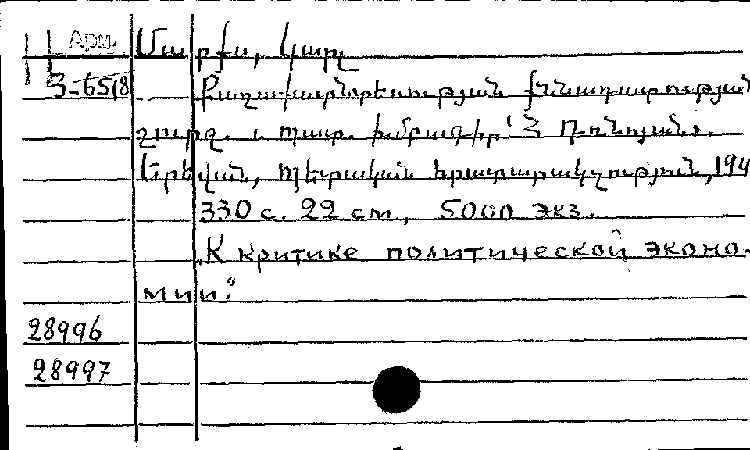 Арм. Մարքս, Կարլ
3-65/8 Քաղաքատնտեսության քննադատության
շուրջ. պատ. խմբագիր՝ Հ.
Երևան, Պետական հրատարակչություն, 194
330 с. 22 см, 5000 экз.
„К критике политической эконо-
мии."
28996
28997